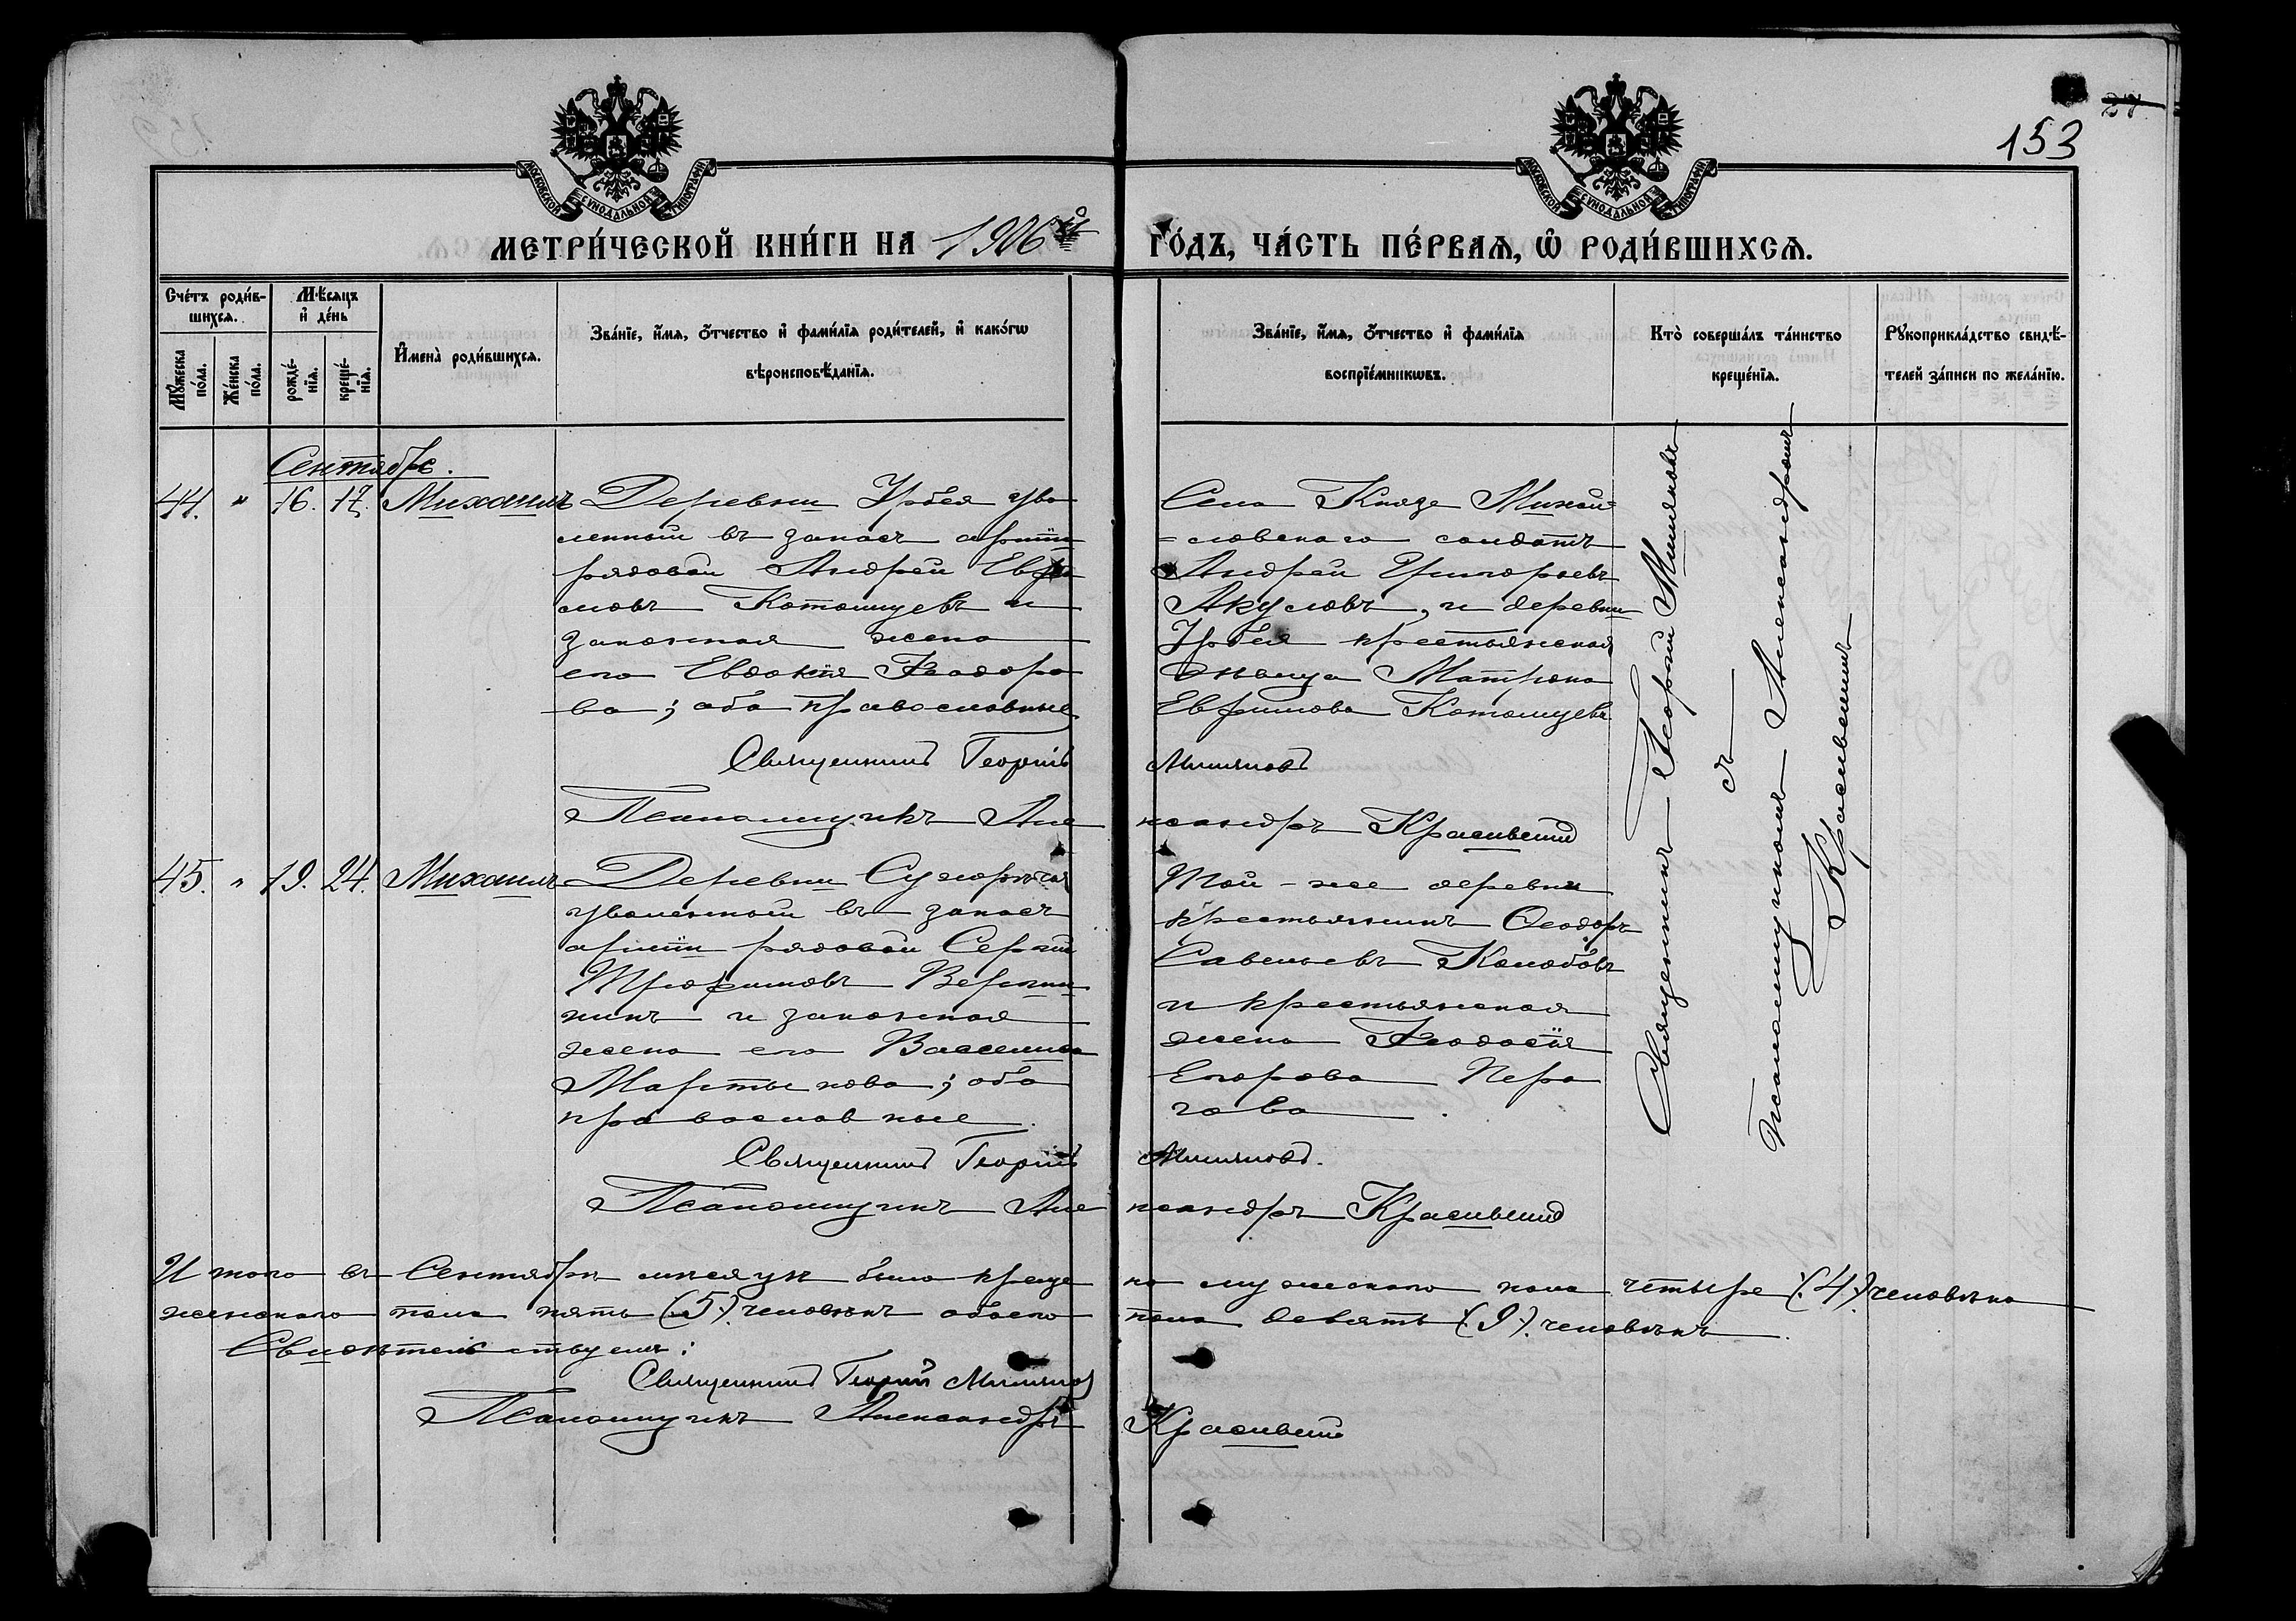 153
МОСКОВСКОЙ СУНОДАЛЬНОЙ ТИПОГРАФІИ
МОСКОВСКОЙ СУНОДАЛЬНОЙ ТИПОГРАФІИ
МЕТРИ́ЧЕСКОЙ КНИ́ГИ НА 1906й ГО́ДЪ, ЧА́СТЬ ПЕ́РВАѦ, Ѿ РОДИ́ВШИХСѦ.
Счéтъ роди́в-
шихсѧ.
Мꙋ́жеска по́ла.
Же́нска по́ла.
Мѣ́сѧцъ и҆ де́нь
рожде́-нїѧ.
креще́-нїѧ.
И҆мена̀ роди́вшихсѧ.
Зва́нїе, и҆́мѧ, ѻ҆́тчество и҆ фами́лїѧ роди́телей, и҆ како́гѡ
вѣроисповѣ́данїѧ.
Зва́нїе, и҆́мѧ, ѻ҆́тчество и҆ фами́лїѧ
воспрїе́мникѡвъ.
Кто̀ соверша́лъ та́инство
креще́нїѧ.
Рꙋкоприкла́дство свидѣ́-
телей за́писи по жела́нїю.
Сентябрь.
44. " 16. 17. Михаилъ
Деревни Урбея уво
ленный въ запасъ арміи
рядовой Андрей Евфи
мовъ Котомцевъ и
законная жена
его Евдокія Ѳеодоро
ва; оба православные
Села Князе Михай
=ловскаго солдатъ
Андрей Григорьевъ
Акуловъ, и деревни
Урбея крестьянская
дѣвица Матрона
Евфимова Котомцева
Священникъ Георгій Мишяковъ
Псаломщикъ Александръ Красивскій
45. " 19. 24. Михаилъ
Деревни
уволенный въ запасъ
арміи рядовой Сергій
Трофимовъ
и законная
жена его Василиса
Мартынова; оба
православные.
Той-же деревни
крестьянинъ Ѳеодоръ
Савельевъ Колобовъ
и крестьянская
жена Ѳеодосія
Егорова
Священникъ Георгій Мишяковъ.
Псаломщикъ Александръ Красивскій
Священникъ Георгій Мишяковъ
съ
Псаломщикомъ Александромъ
Красивскимъ
Итого въ Сентябрѣ мѣсяцѣ было креще но мужескаго пола четыре (4) человѣка
женскаго пола пять (5) человѣкъ обоего пола девять (9) человѣкъ.
Свидѣтельствуемъ:
Священникъ Георгій Мишяковъ
Псаломщикъ Александръ Красивскій